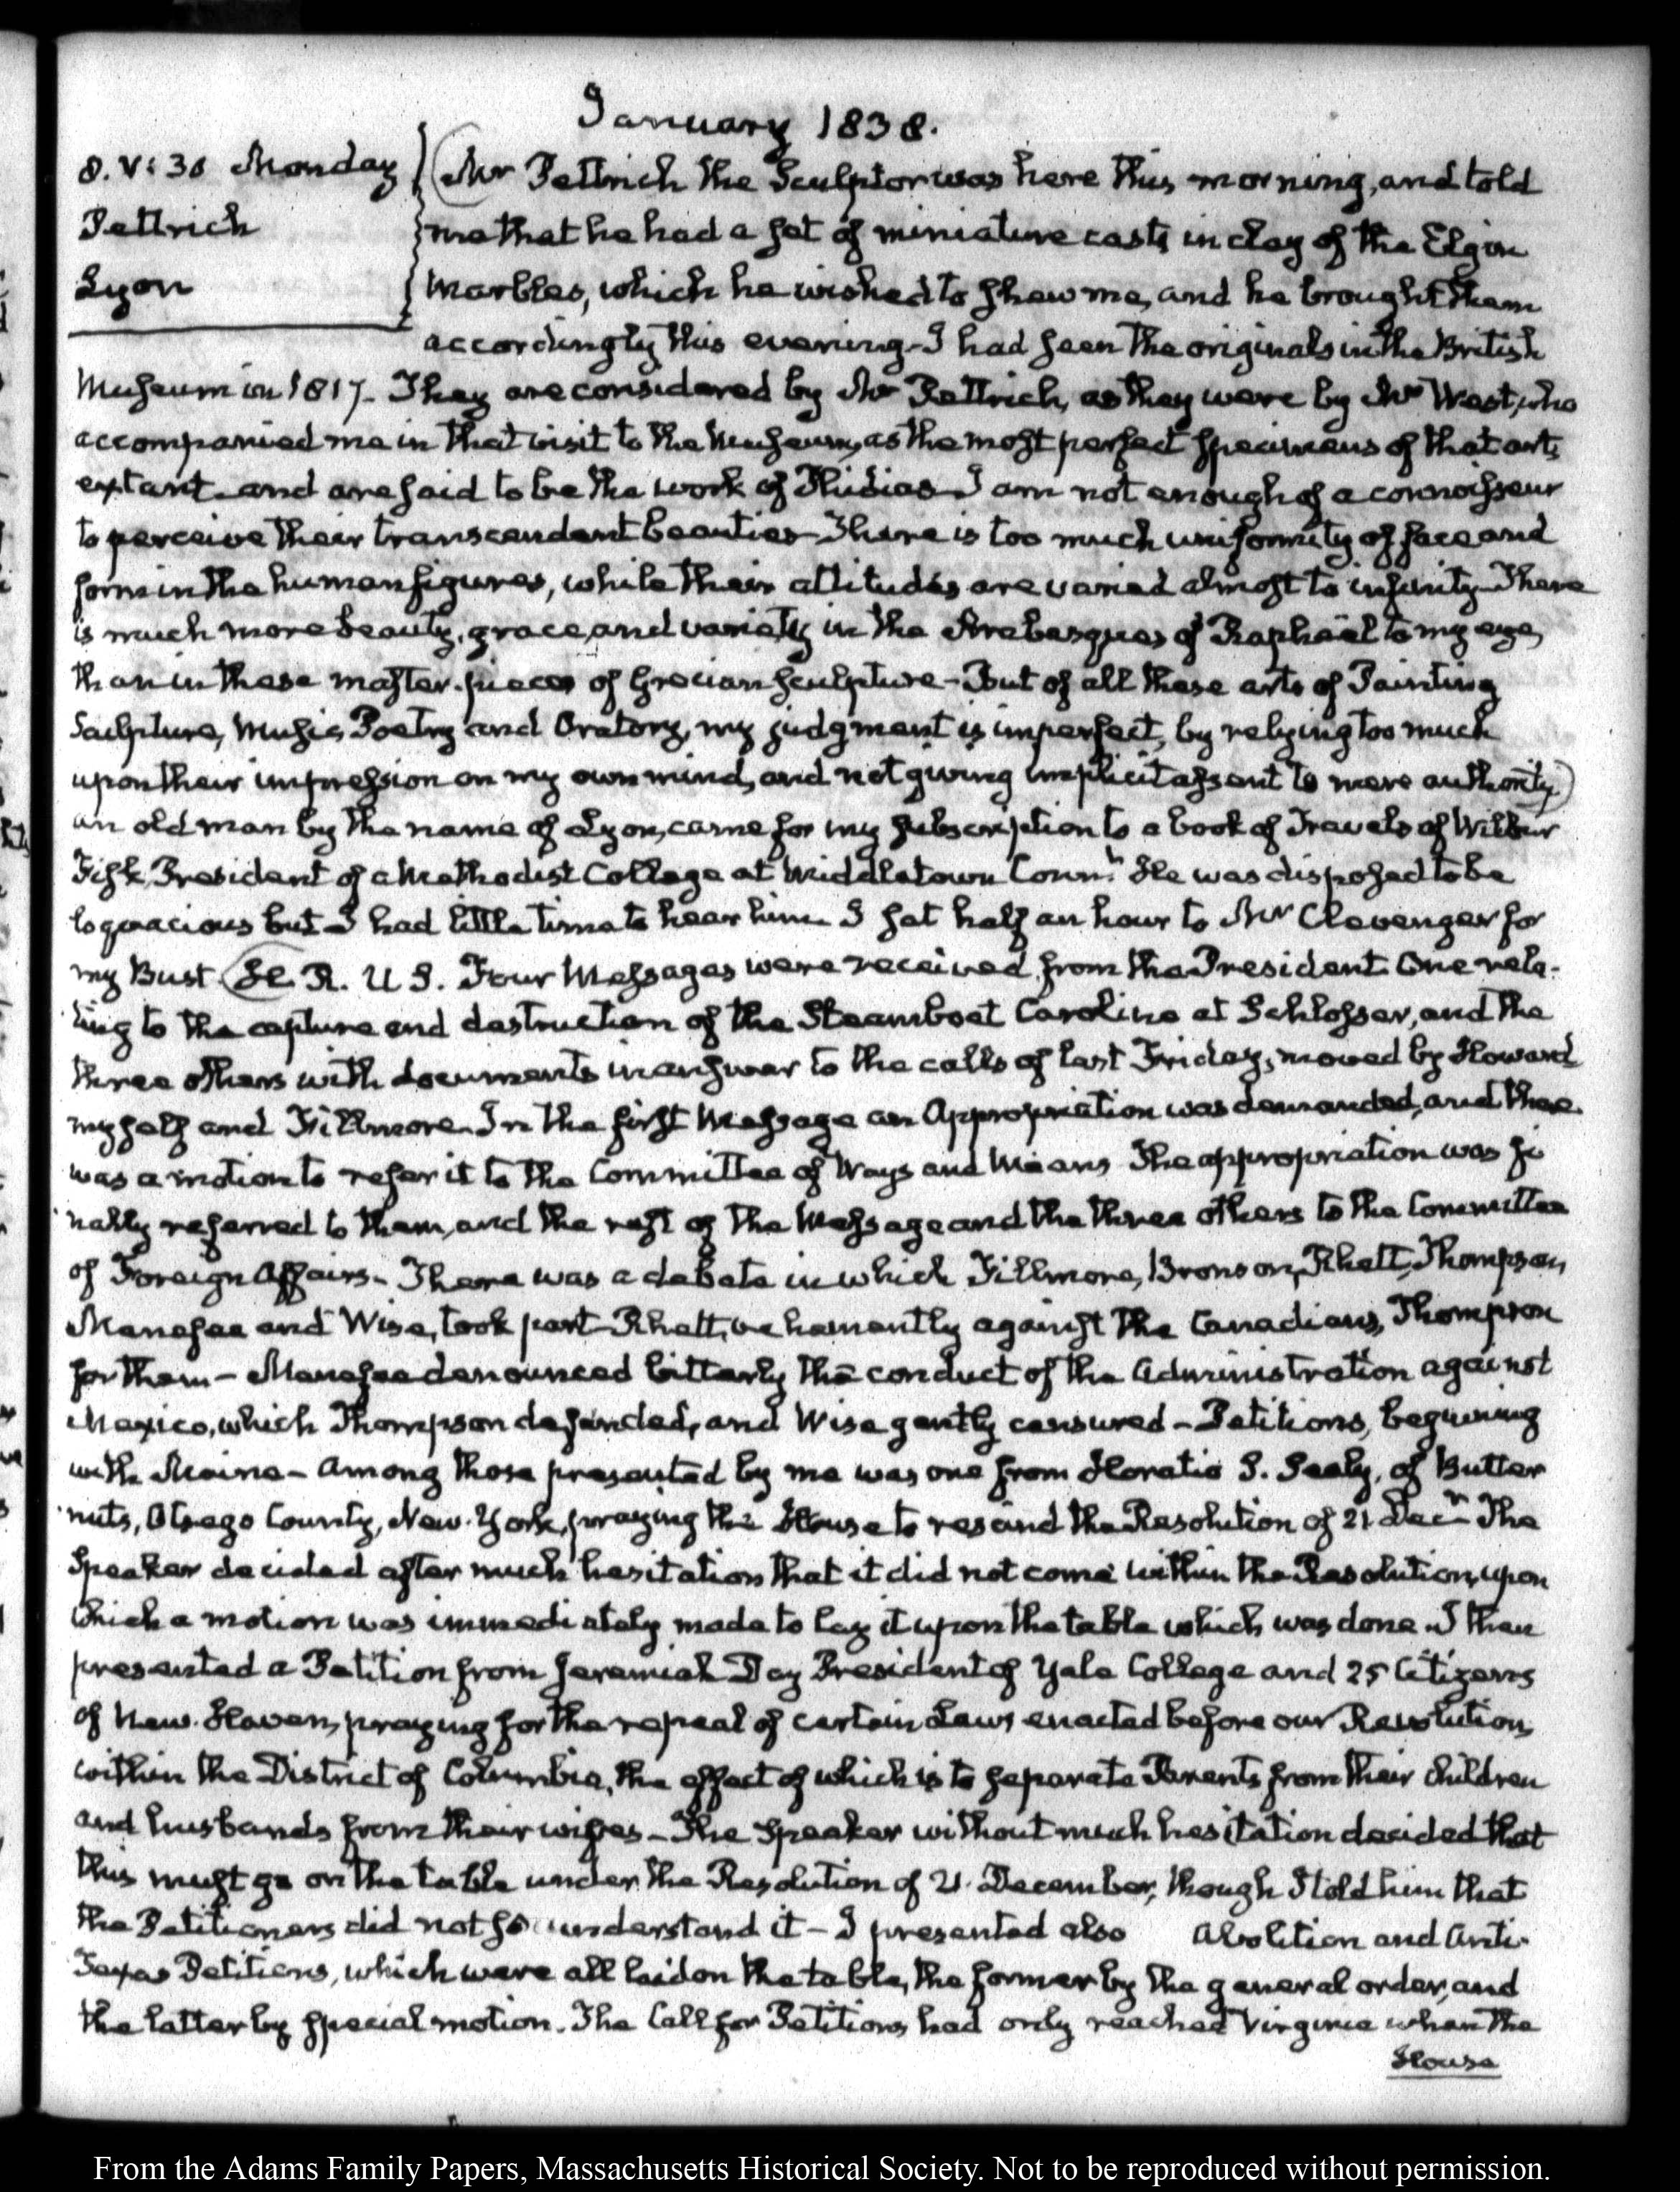 January 1838.
8. V: 30 Monday
Pettrich
Lyon
Mr Pettrich the Sculptor was here this morning, and told
me that he had a set of miniature casts in clay of the Elgin
Marbles, which he wished to shew me, and he brought them
accordingly this evening - I had seen the originals in the British
Museum in 1817 - They are considered by Mr Pettrich, as they were by Mr West, who
accompanied me in that visit to the Museum, as the most perfect specimens of that art,
extant - and are said to be the work of Phidias - I am not enough of a connoisseur
to perceive their transcendent beauties - There is too much uniformity of face and
form in the human figures, while their attitudes are varied almost to infinity - There
is much more beauty, grace, and variety in the Arabesques of Raphäel to my eye,
than in these master-pieces of Grecian Sculpture - But of all these arts of Painting
Sculpture, Music, Poetry and Oratory, my judgment is imperfect, by relying too much
upon their impression on my own mind, and not giving implicit assent to mere authority)
an old man by the name of Lyon, came for my subscription to a book of Travels of Wilbur
Fisk, President of a Methodist College at Middletown Connt. He was disposed to be
loquacious but I had little time to hear him - I sat half an hour to Mr Clevenger for
my Bust (H. R. U S. Four Messages were received from the President. One rela-
ting to the capture and destruction of the Steamboat Caroline at Schlosser, and the
three others with documents in answer to the calls of last Friday, moved by Howard
myself and Fillmore. In the first Message an Appropriation was demanded, and there
was a motion to refer it to the Committee of Ways and Means The appropriation was fi
nally referred to them, and the rest of the Message and the three others to the Committee
of Foreign Affairs - There was a debate in which Fillmore, Bronson, Rhett, Thompson,
Menefee and Wise, took part - Rhett, vehemently against the Canadians, Thompson
for them - Menefee denounced bitterly the conduct of the Administration against
Mexico, which Thompson defended, and Wise gently censured - Petitions, beginning
with Maine - Among those presented by me was one from Horatio S. Sealy, of Butter
nuts, Otsego County, New-York, praying the House to rescind the Resolution of 21 Decr The
Speaker decided after much hesitation that it did not come within the Resolution, upon
which a motion was immediately made to lay it upon the table which was done. I then
presented a Petition from Jeremiah Day President of Yale College and 25 Citizens
of New-Haven, praying for the repeal of certain Laws enacted before our Revolution,
within the District of Columbia, the effect of which is to separate Parents from their children
and husbands from their wives - The Speaker without much hesitation decided that
this must go on the table under the Resolution of 21. December, though I told him that
the Petitioners did not so understand it - I presented also Abolition and Anti-
Texas Petitions, which were all laid on the table, the former by the general order, and
the latter by special motion. The Call for Petitions had only reached Virginia when the
House
From the Adams Family Papers, Massachusetts Historical Society. Not to be reproduced without permission.